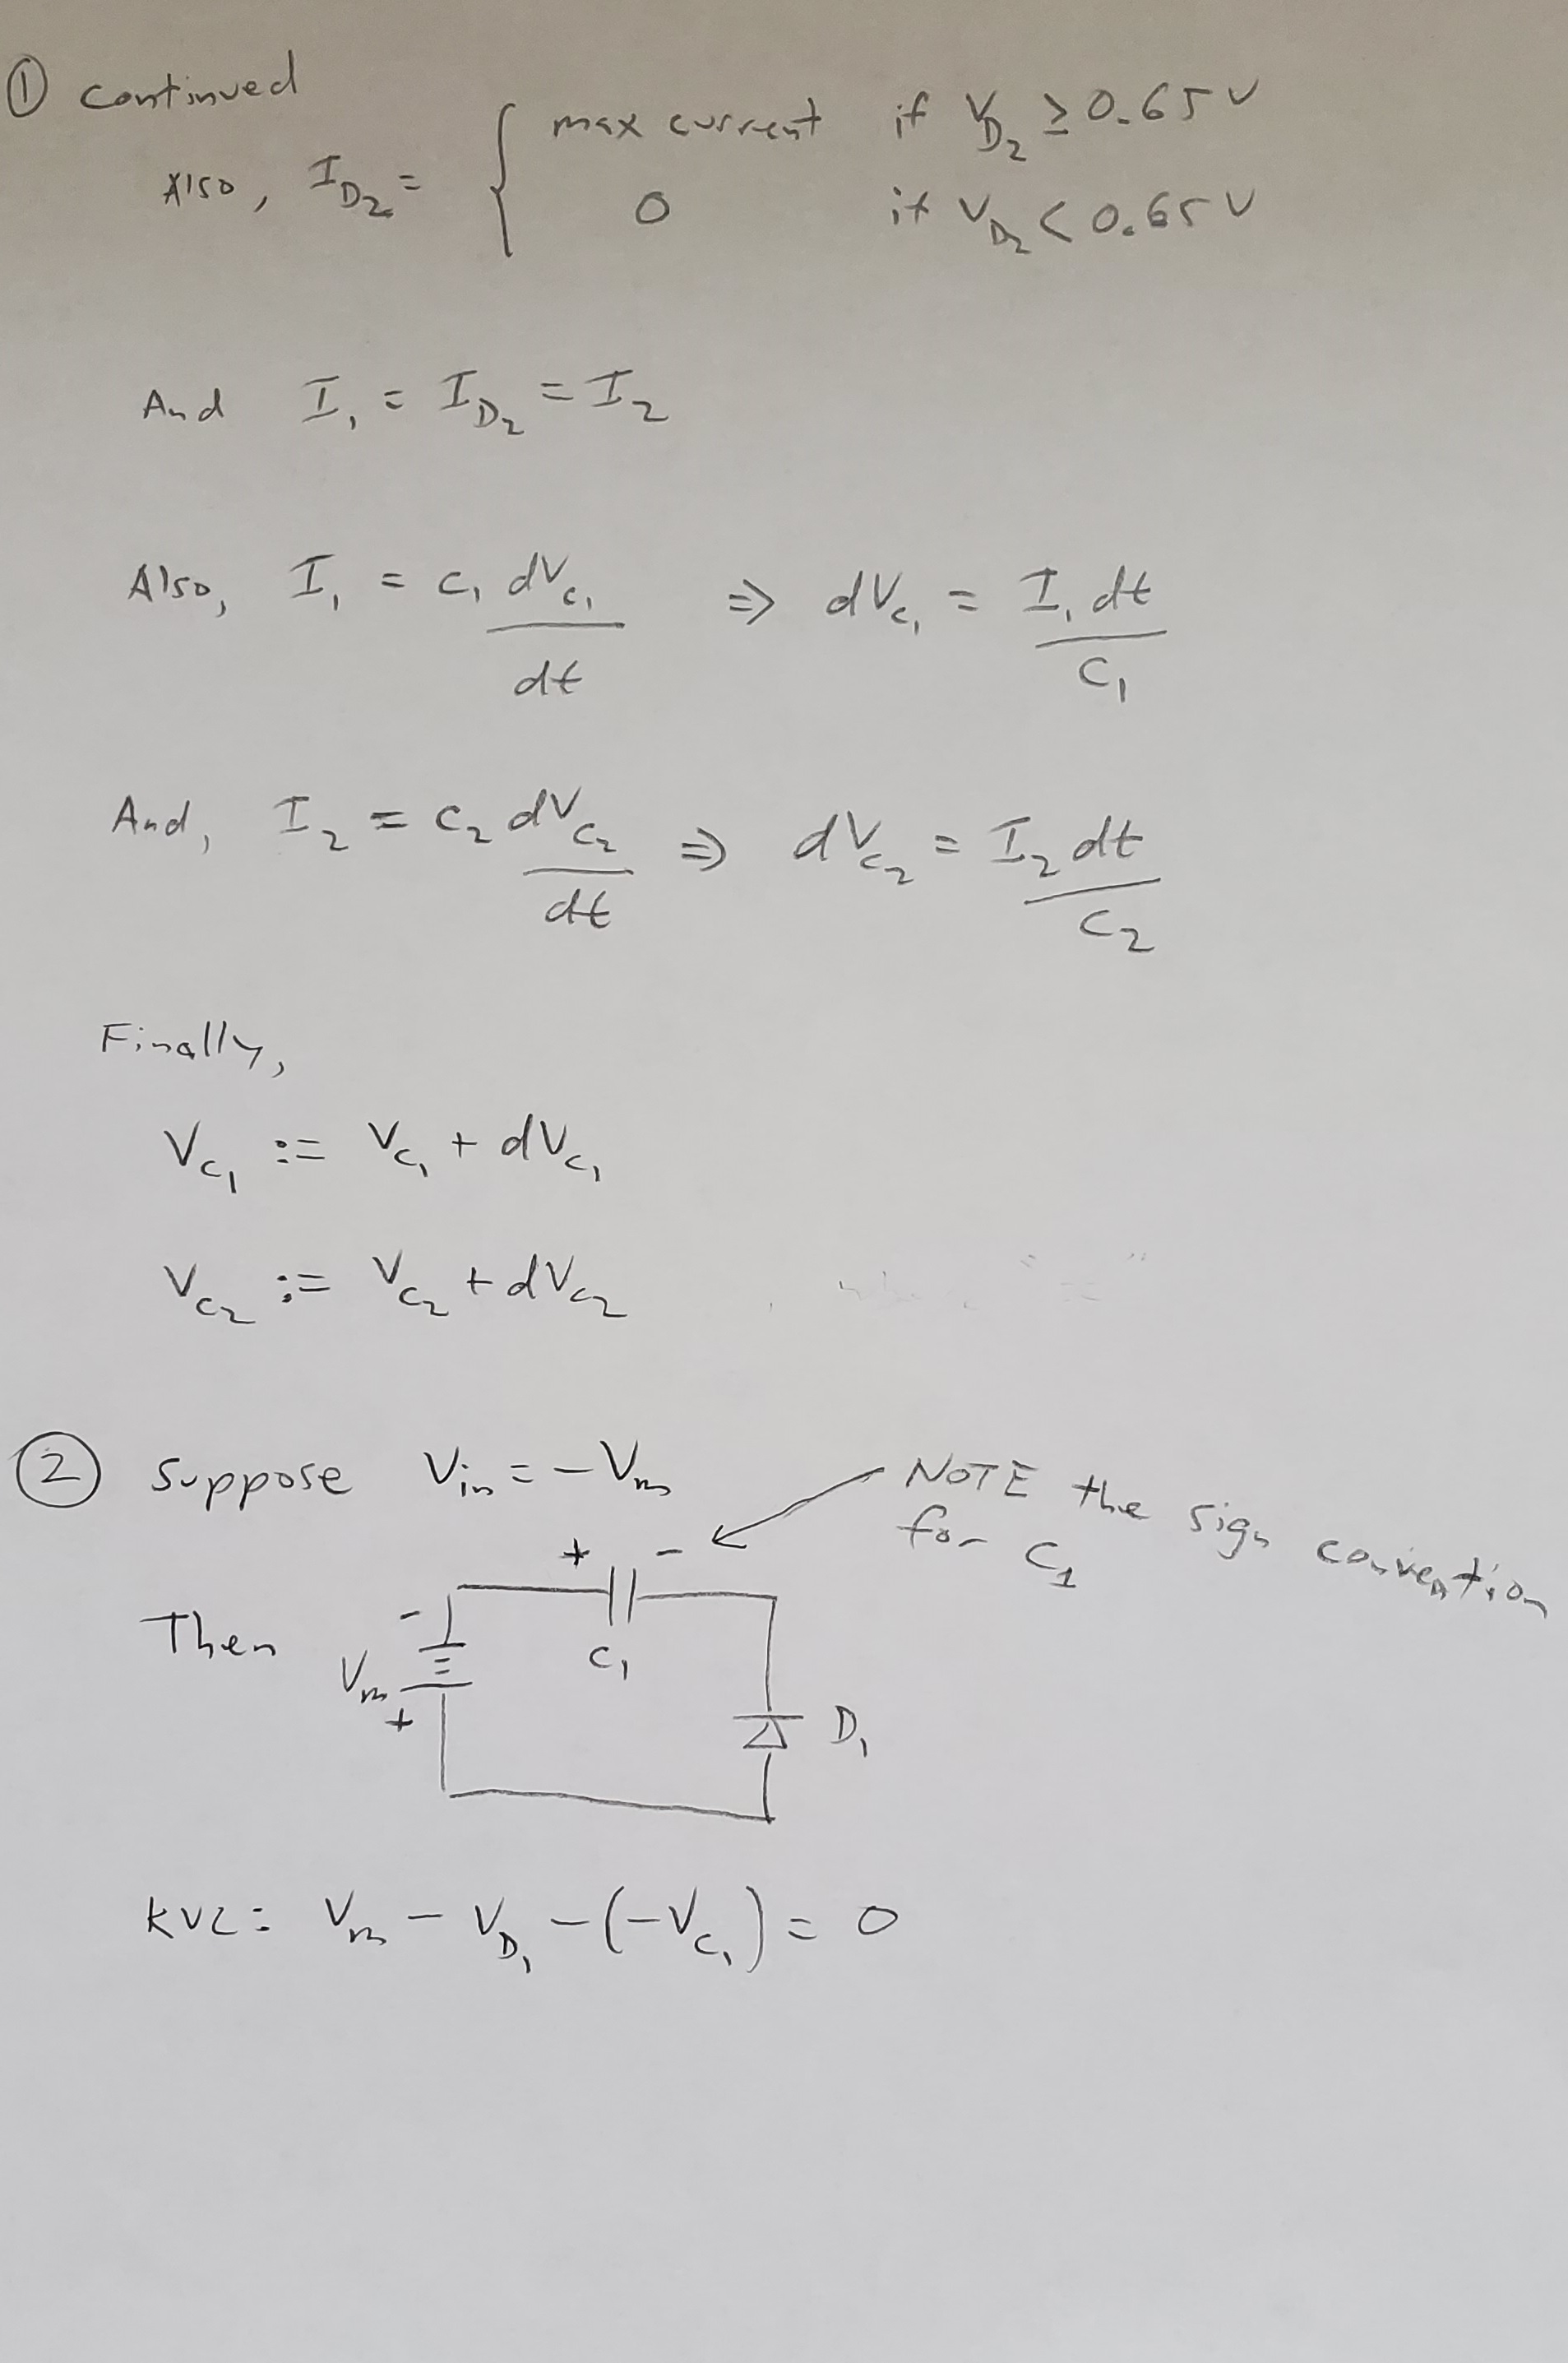 ① continued
Also, I_D2 = { max current if V_D2 ≥ 0.65V
0 if V_D2 < 0.65V
And I_1 = I_D2 = I_2
Also, I_1 = C_1 dV_C1/dt ⇒ dV_C1 = I_1 dt/C_1
And, I_2 = C_2 dV_C2/dt ⇒ dV_C2 = I_2 dt/C_2
Finally,
V_C1 := V_C1 + dV_C1
V_C2 := V_C2 + dV_C2
② Suppose V_in = -V_m
NOTE the sign convention
for C_1
+ -
Then
-
V_m
+
C_1
D_1
KVL: V_m - V_D1 - (-V_C1) = 0